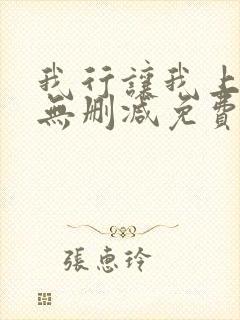 我行讓我上
無刪減免費
張惠玲